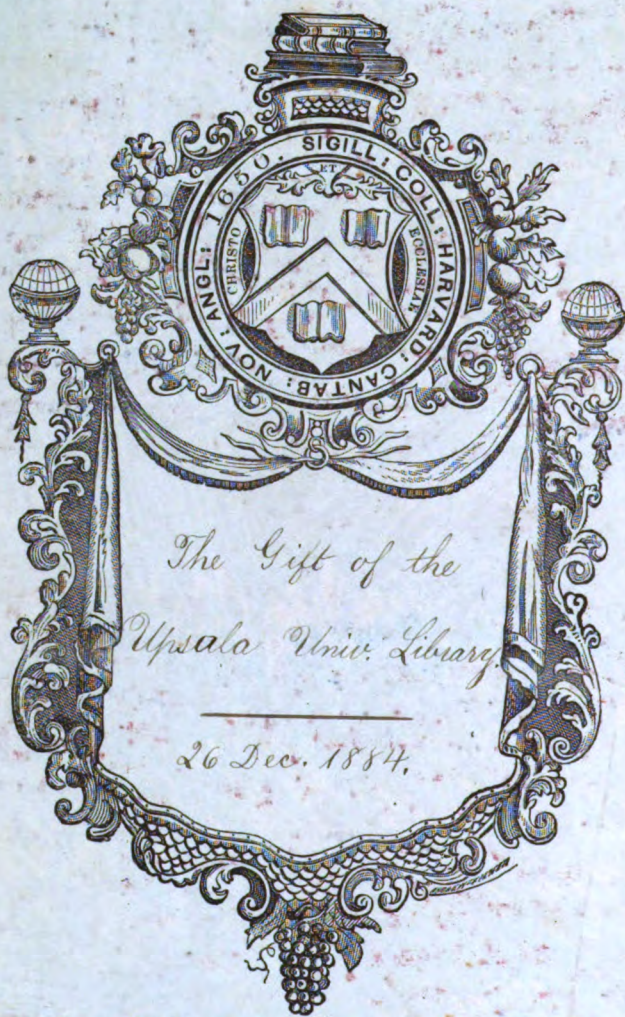 SIGILL: COLL: HARVARD: CANTAB: NOV: ANGL: 1650.
CHRISTO ET ECCLESIAE
The Gift of the
Upsala Univ. Library.
26 Dec. 1884.